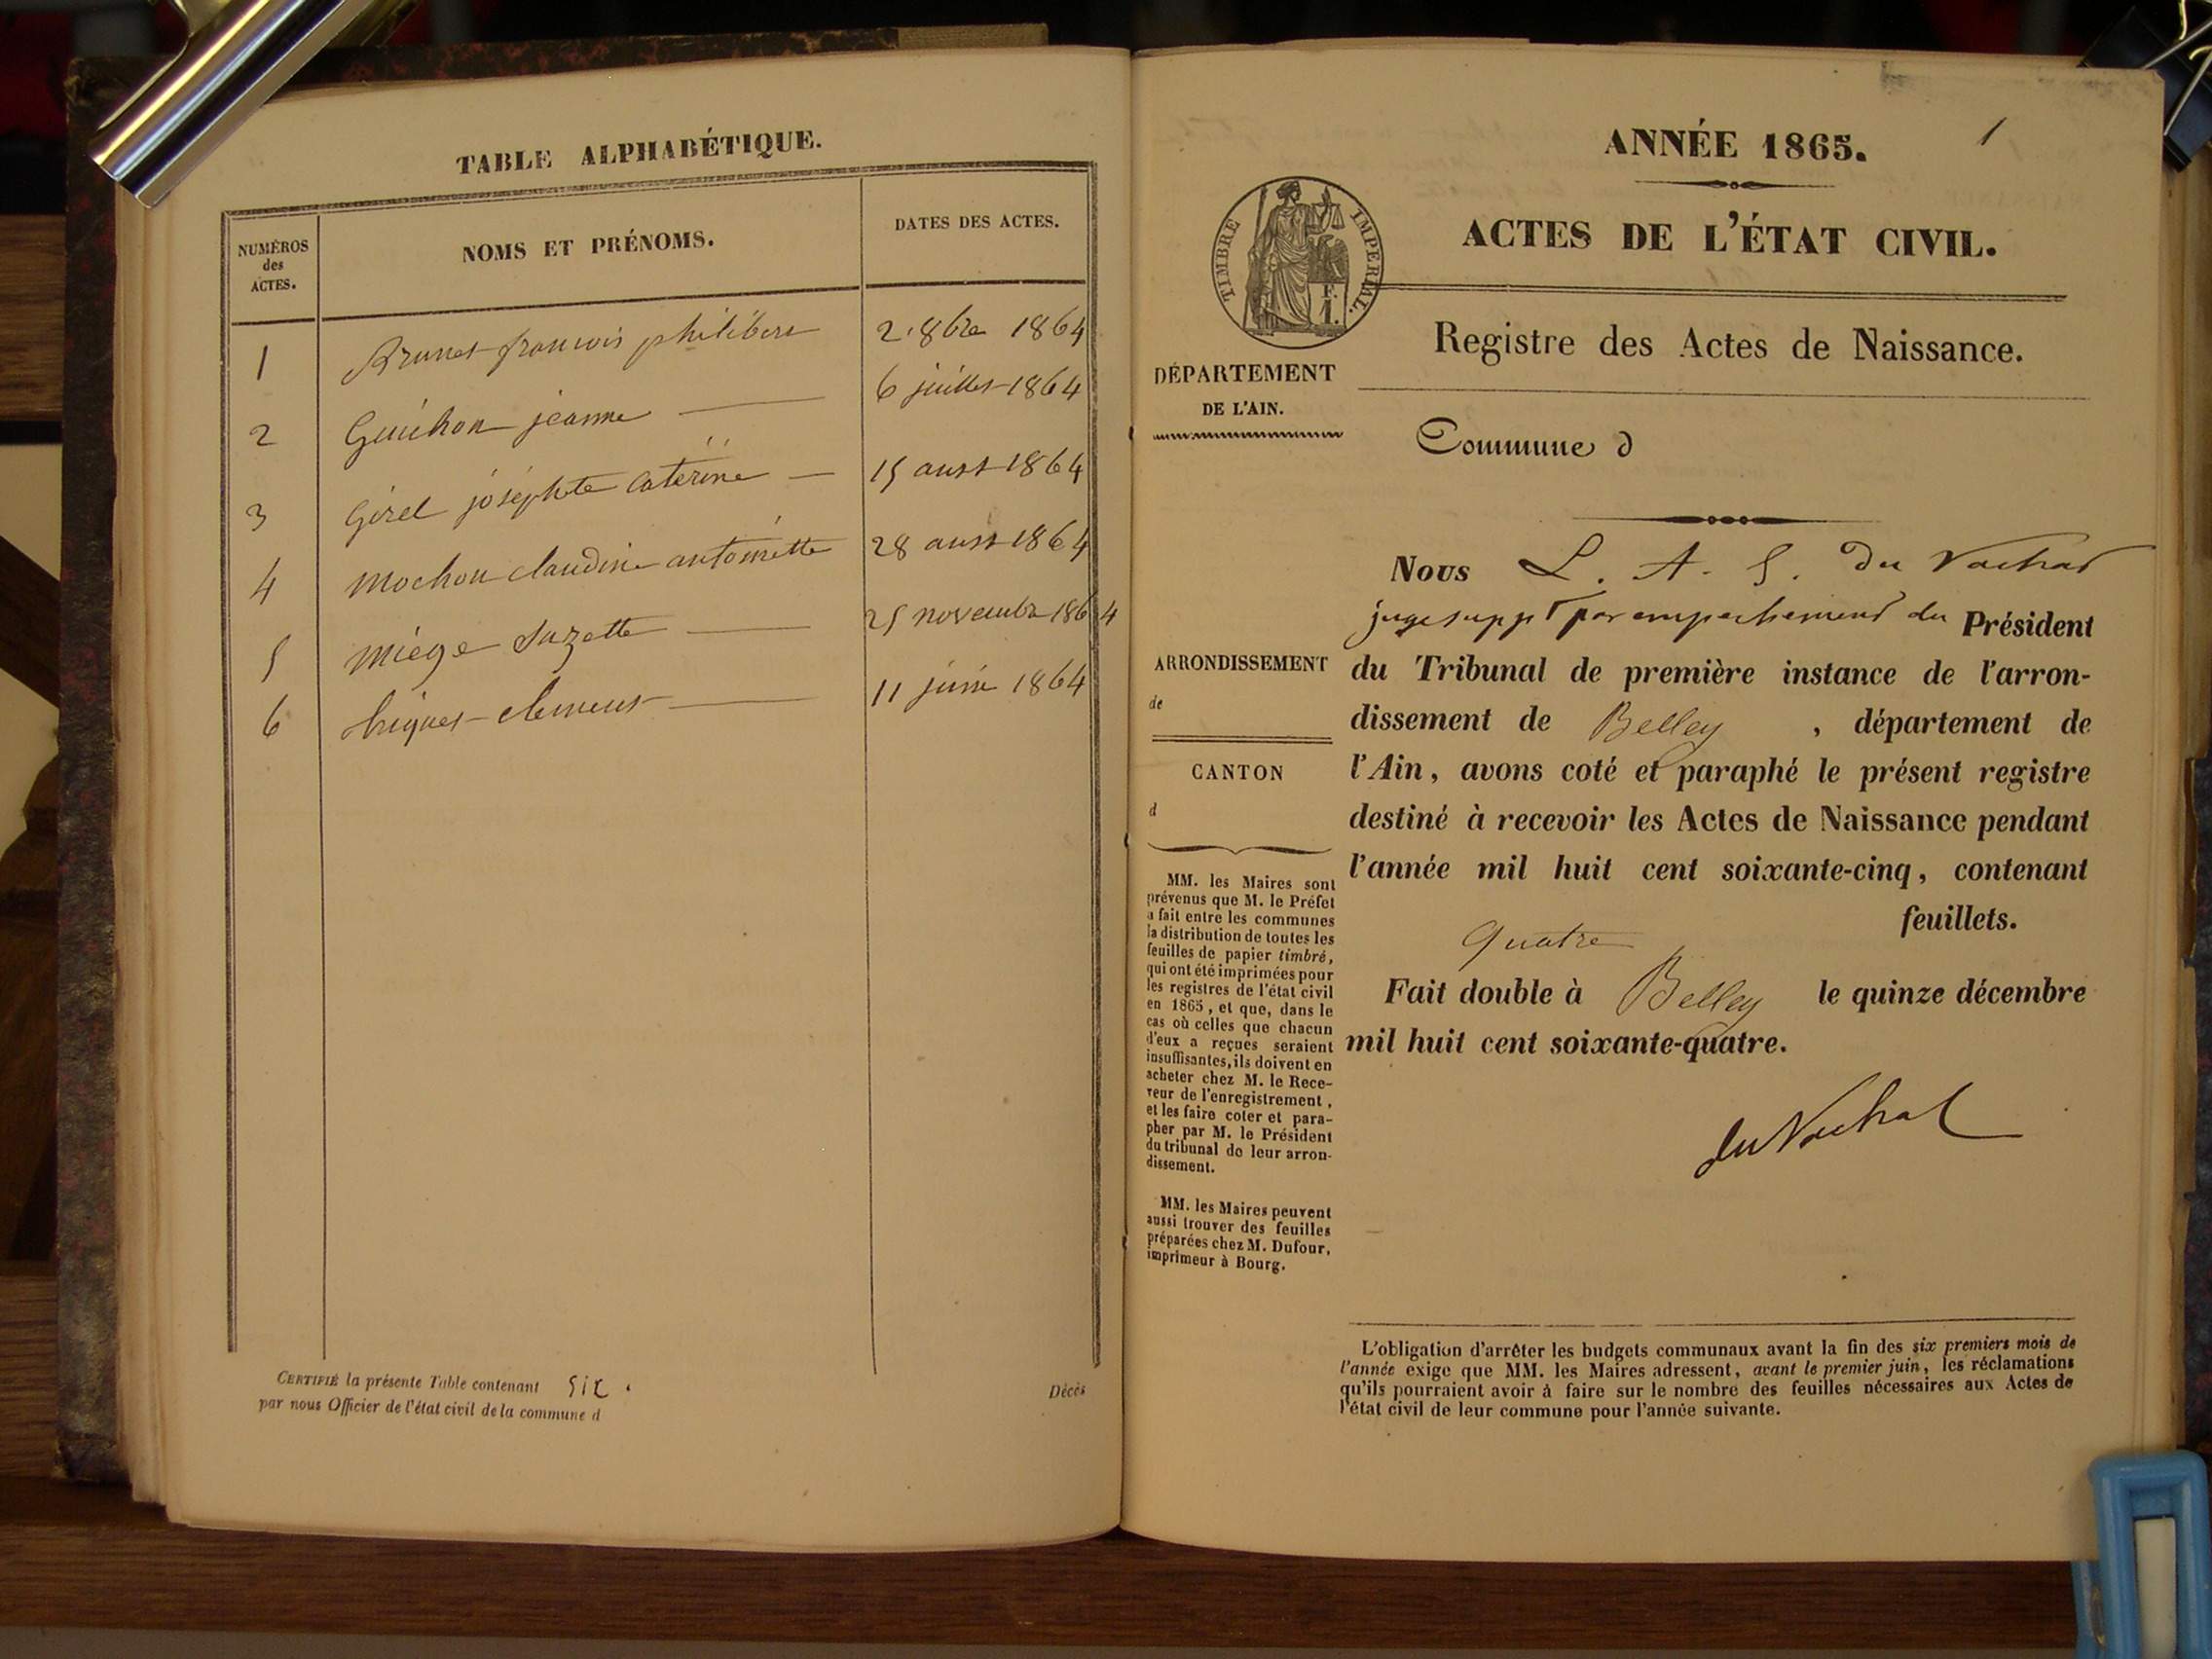 TABLE ALPHABÉTIQUE.
NUMÉROS
des
ACTES.
NOMS ET PRÉNOMS.
DATES DES ACTES.
1 Brunet françois philibert 2. 8bre 1864
2 Guichon jeanne 6 juillet 1864
3 Girel joséphte catérine 15 aust 1864
4 Mochon claudine antoinette 28 aust 1864
5 Miége Suzette 25 novembre 1864
6 clement 11 juin 1864
CERTIFIÉ la présente Table contenant six.
par nous Officier de l'état civil de la commune d
Décès
1
ANNÉE 1865.
ACTES DE L'ÉTAT CIVIL.
TIMBRE IMPERIAL.
F.
1.
Registre des Actes de Naissance.
DÉPARTEMENT
DE L'AIN.
Commune d
Nous L. A. S. du Vachat
juge suppt par empechement du Président
du Tribunal de première instance de l'arron-
dissement de Belley, département de
l'Ain, avons coté et paraphé le présent registre
destiné à recevoir les Actes de Naissance pendant
l'année mil huit cent soixante-cinq, contenant
quatre feuillets.
Fait double à Belley le quinze décembre
mil huit cent soixante-quatre.
du Vachat
ARRONDISSEMENT
de
CANTON
d
MM. les Maires sont
prévenus que M. le Préfet
a fait entre les communes
la distribution de toutes les
feuilles de papier timbré,
qui ont été imprimées pour
les registres de l'état civil
en 1865, et que, dans le
cas où celles que chacun
d'eux a reçues seraient
insuffisantes, ils doivent en
acheter chez M. le Rece-
veur de l'enregistrement,
et les faire coter et para-
pher par M. le Président
du tribunal de leur arron-
dissement.
MM. les Maires peuvent
aussi trouver des feuilles
préparées chez M. Dufour,
imprimeur à Bourg.
L'obligation d'arrêter les budgets communaux avant la fin des six premiers mois de
l'année exige que MM. les Maires adressent, avant le premier juin, les réclamations
qu'ils pourraient avoir à faire sur le nombre des feuilles nécessaires aux Actes de
l'état civil de leur commune pour l'année suivante.